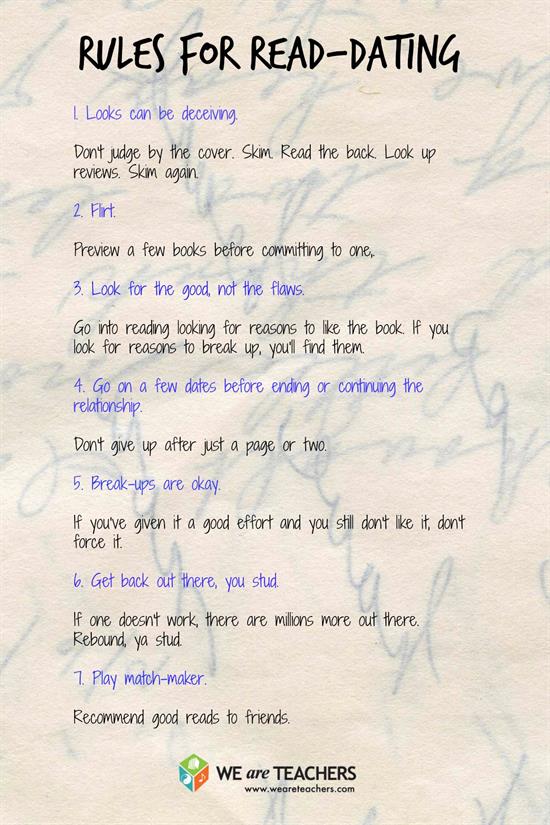 RULES FOR READ-DATING
1. Looks can be deceiving.
Don't judge by the cover. Skim. Read the back. Look up
reviews. Skim again.
2. Flirt.
Preview a few books before committing to one,.
3. Look for the good, not the flaws.
Go into reading looking for reasons to like the book. If you
look for reasons to break up, you'll find them.
4. Go on a few dates before ending or continuing the
relationship.
Don't give up after just a page or two.
5. Break-ups are okay.
If you've given it a good effort and you still don't like it, don't
force it.
6. Get back out there, you stud.
If one doesn't work, there are millions more out there.
Rebound, ya stud.
7. Play match-maker.
Recommend good reads to friends.
WE are TEACHERS
www.weareteachers.com